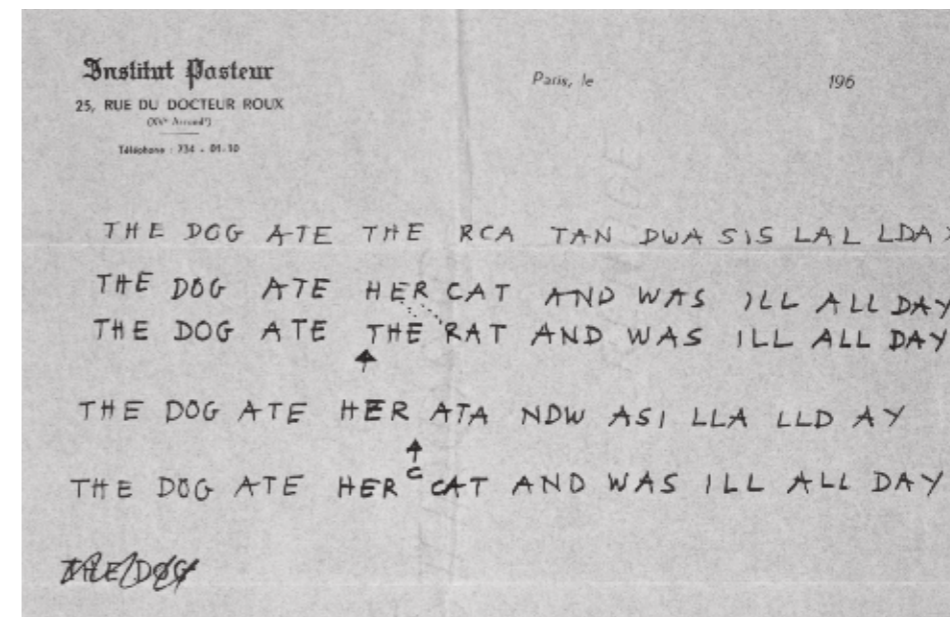 Institut Pasteur
25, RUE DU DOCTEUR ROUX
(XVe Arrondt)
Téléphone : 734 - 01-10
Paris, le 196
THE DOG ATE THE RCA TAN DWA SIS LAL LDA
THE DOG ATE HER CAT AND WAS ILL ALL DAY
THE DOG ATE THE RAT AND WAS ILL ALL DAY
THE DOG ATE HER ATA NDW ASI LLA LLD AY
C
THE DOG ATE HER CAT AND WAS ILL ALL DAY